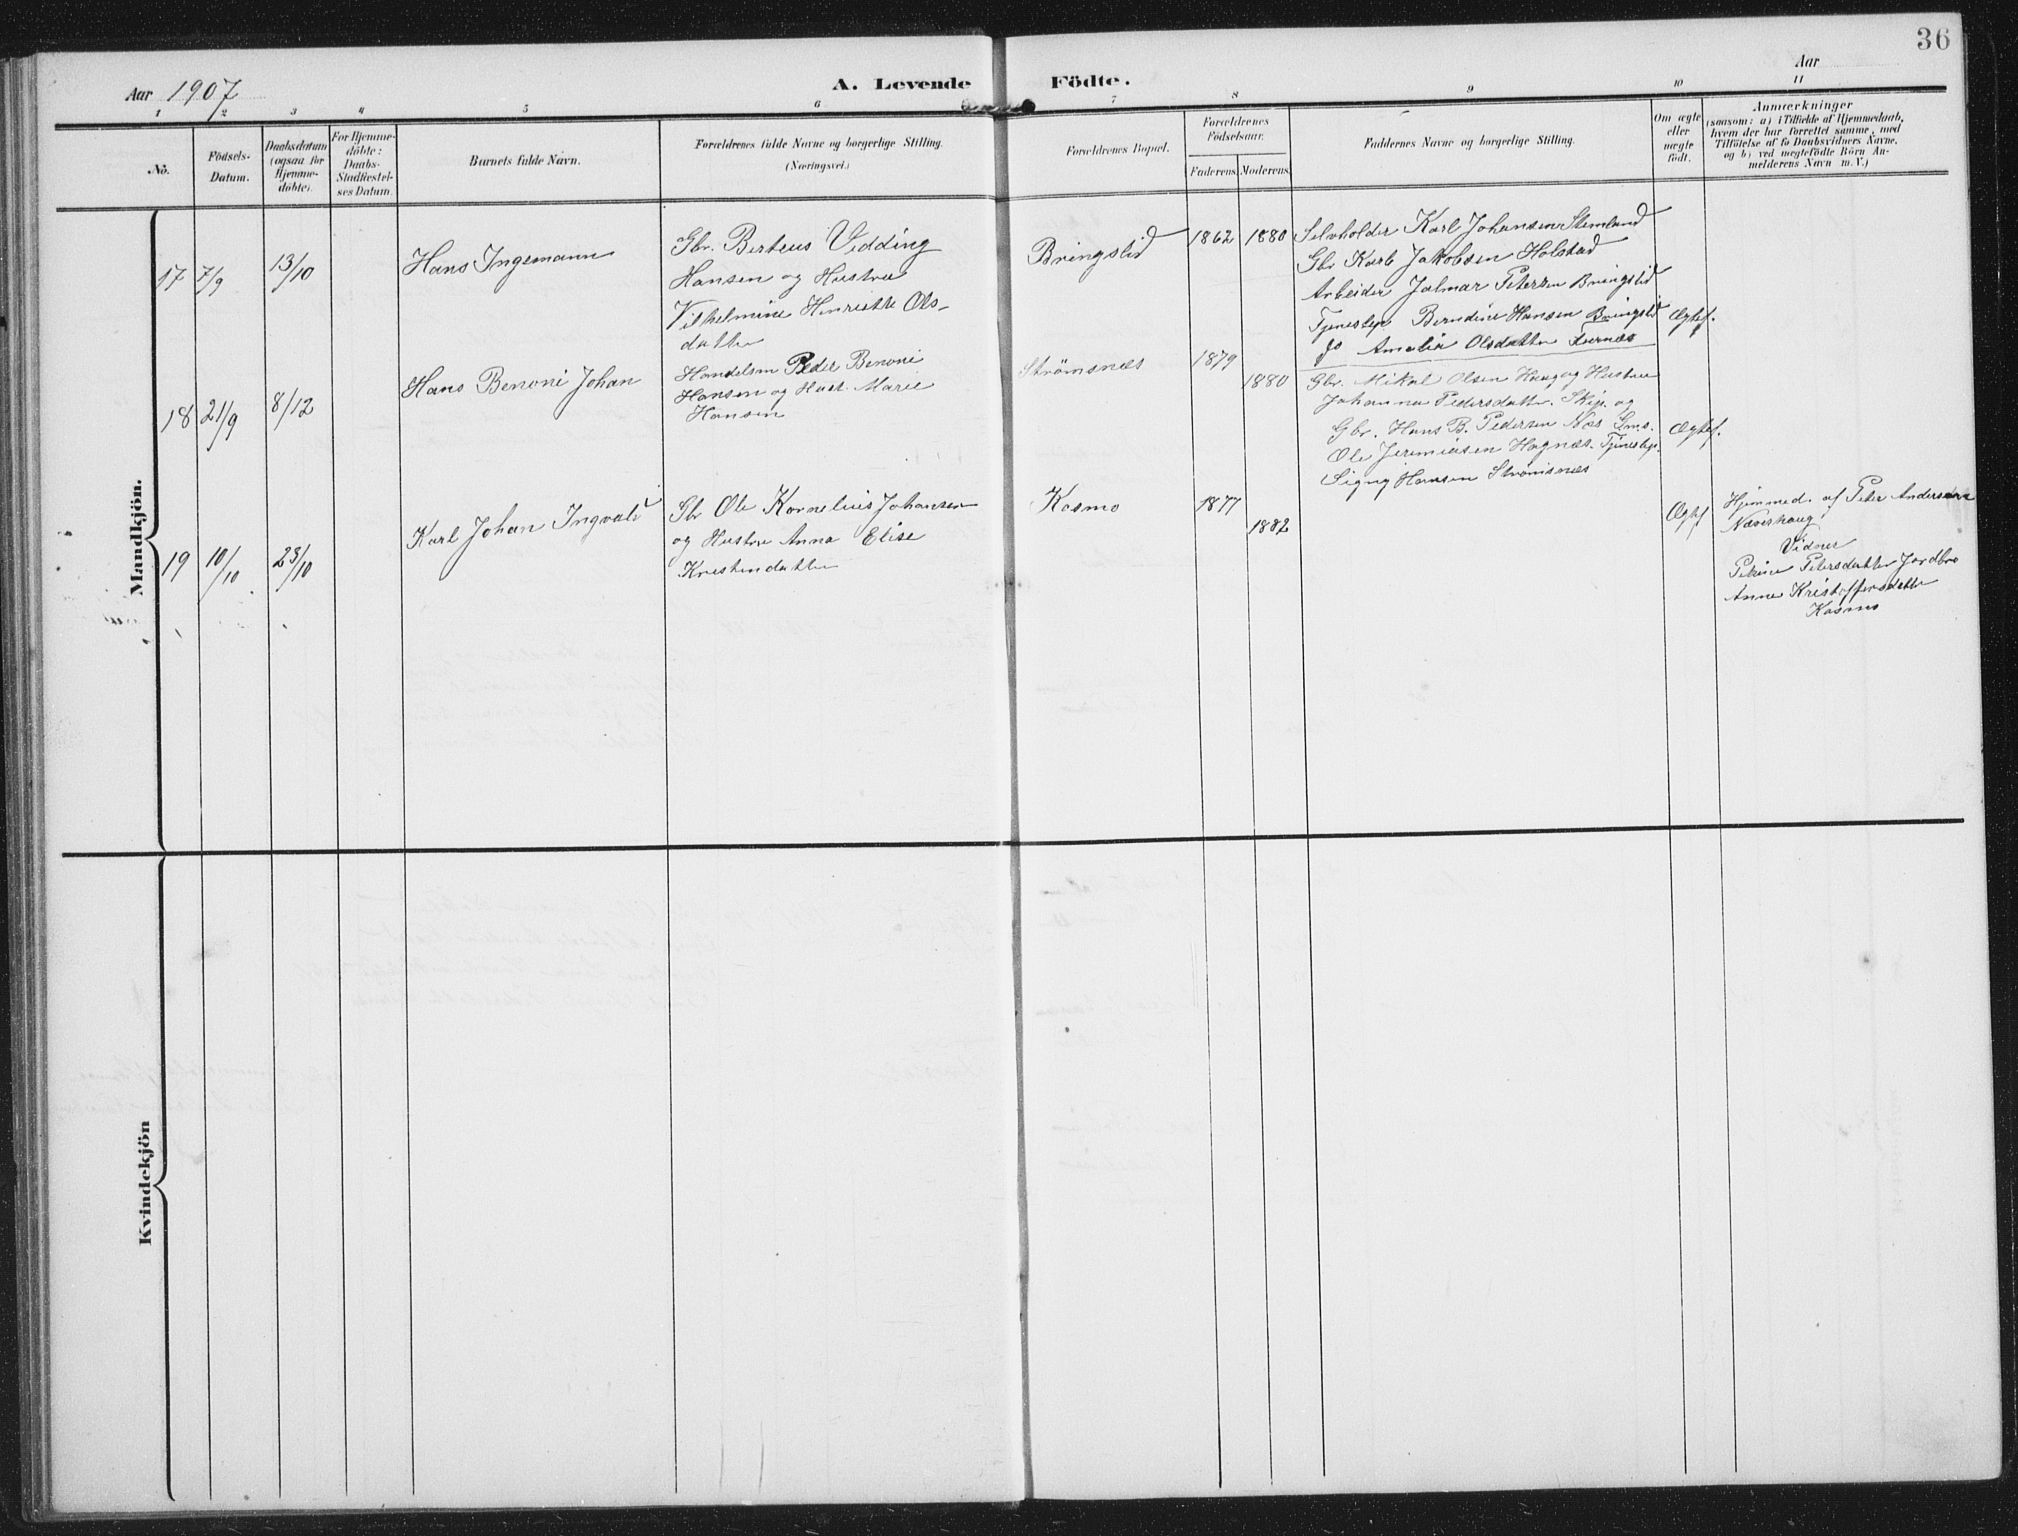 36
Aar 1907
A. Levende Födte.
Aar
1 2 3 4 5 6 6 7 8 9 10 11
No.
Födsels-
Datum.
Daabsdatum
(ogsaa for
Hjemme-
döbte).
For Hjemme-
döbte:
Daabs-
Stadfæstel-
ses Datum.
Barnets fulde Navn.
Forældrenes fulde Navne og borgerlige Stilling.
(Næringsvei.)
Forældrenes Bopæl.
Forældrenes
Födselsaar.
Faderens. Moderens.
Faddernes Navne og borgerlige Stilling.
Om ægte
eller
uægte
födt.
Anmærkninger
(saasom: a) i Tilfælde af Hjemmedaab,
hvem der har forrettet samme, med
Tilföielse af to Daabsvidners Navne,
og b) ved uægtefödte Börn An-
melderens Navn m. V.)
Mandkjön.
17 7/9 13/10
Hans Ingemann
Gbr. Berteus Vedding
Hansen og Hustru
Vilhelmine Henriette Ols-
datter
Bringslid
1862 1880
Selvholder Karl Johansen Stemland
Gbr Karl Jakobsen Holstad
Arbeider Jalmar Petersen Bringslid
Tjenestepi Berndine Hansen Bringslid
do Amalia Olsdatter
Ægtef.
18 21/9 8/12
Hans Benoni Johan
Handelsm Peder Benoni
Hansen og Hust Marie
Hansen
Strömsnæs
1879
1880
Gbr. Mikal Olsen Haug og Hustru
Johanna Pedersdatter. Skip. og
Gbr. Hans B. Pedersen Næs
Ole Jeremiasen Hognæs. Tjenestepi.
Signy Hansen Strömsnæs
Ægtef.
19 10/10 23/10
Karl Johan Ingvald
Gbr Ole Kornelius Johansen
og Hustru Anna Elise
Kristendatter
Kosmo
1877
1882
Ægtef
Hjemmed. af Peter Andersen
Næveshaug
Vidner
Petrine Petersdatter Jordbro
Anne Kristoffersdatter
Kosmo
Kvindekjön